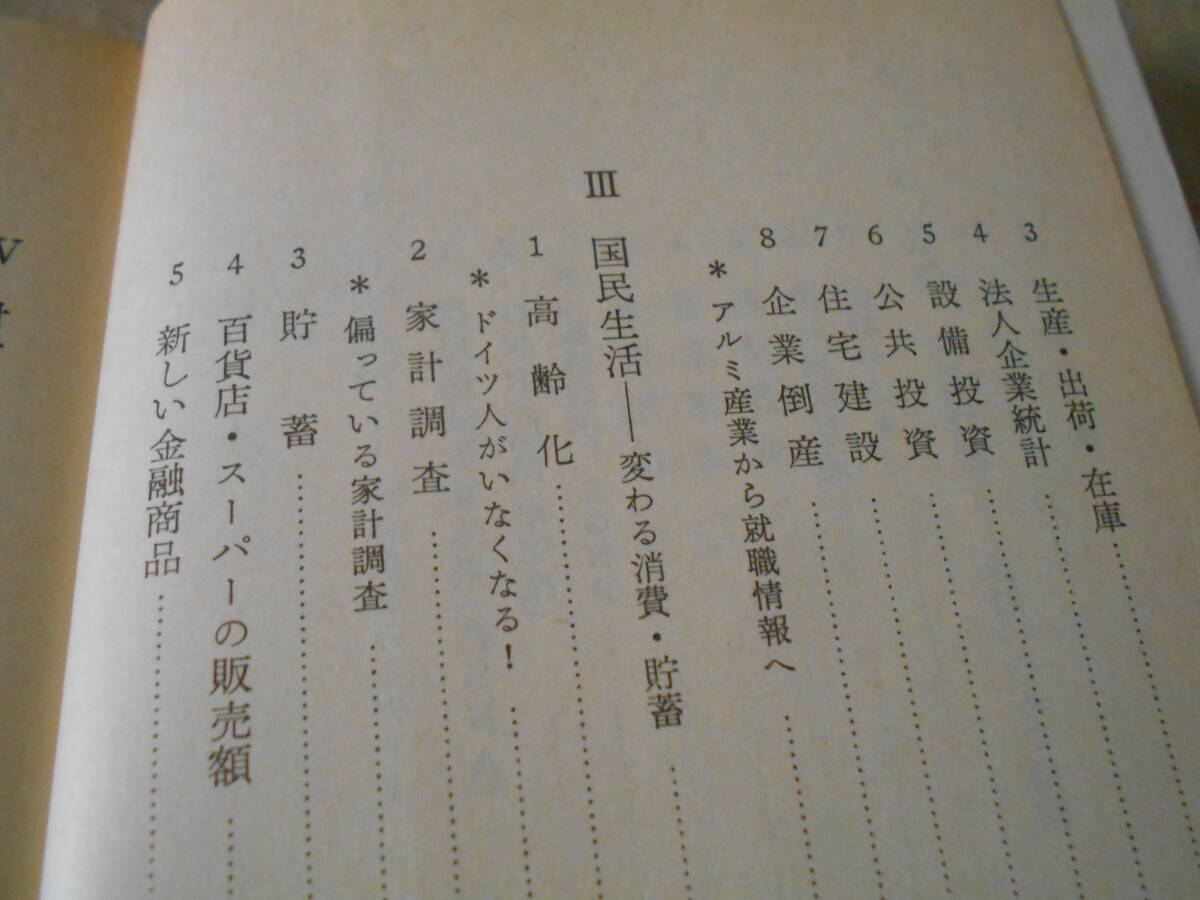 3 生産・出荷・在庫
4 法人企業統計
5 設備投資
6 公共投資
7 住宅建設
8 企業倒産
＊アルミ産業から就職情報へ
Ⅲ 国民生活――変わる消費・貯蓄
1 高齢化
＊ドイツ人がいなくなる！
2 家計調査
＊偏っている家計調査
3 貯蓄
4 百貨店・スーパーの販売額
5 新しい金融商品